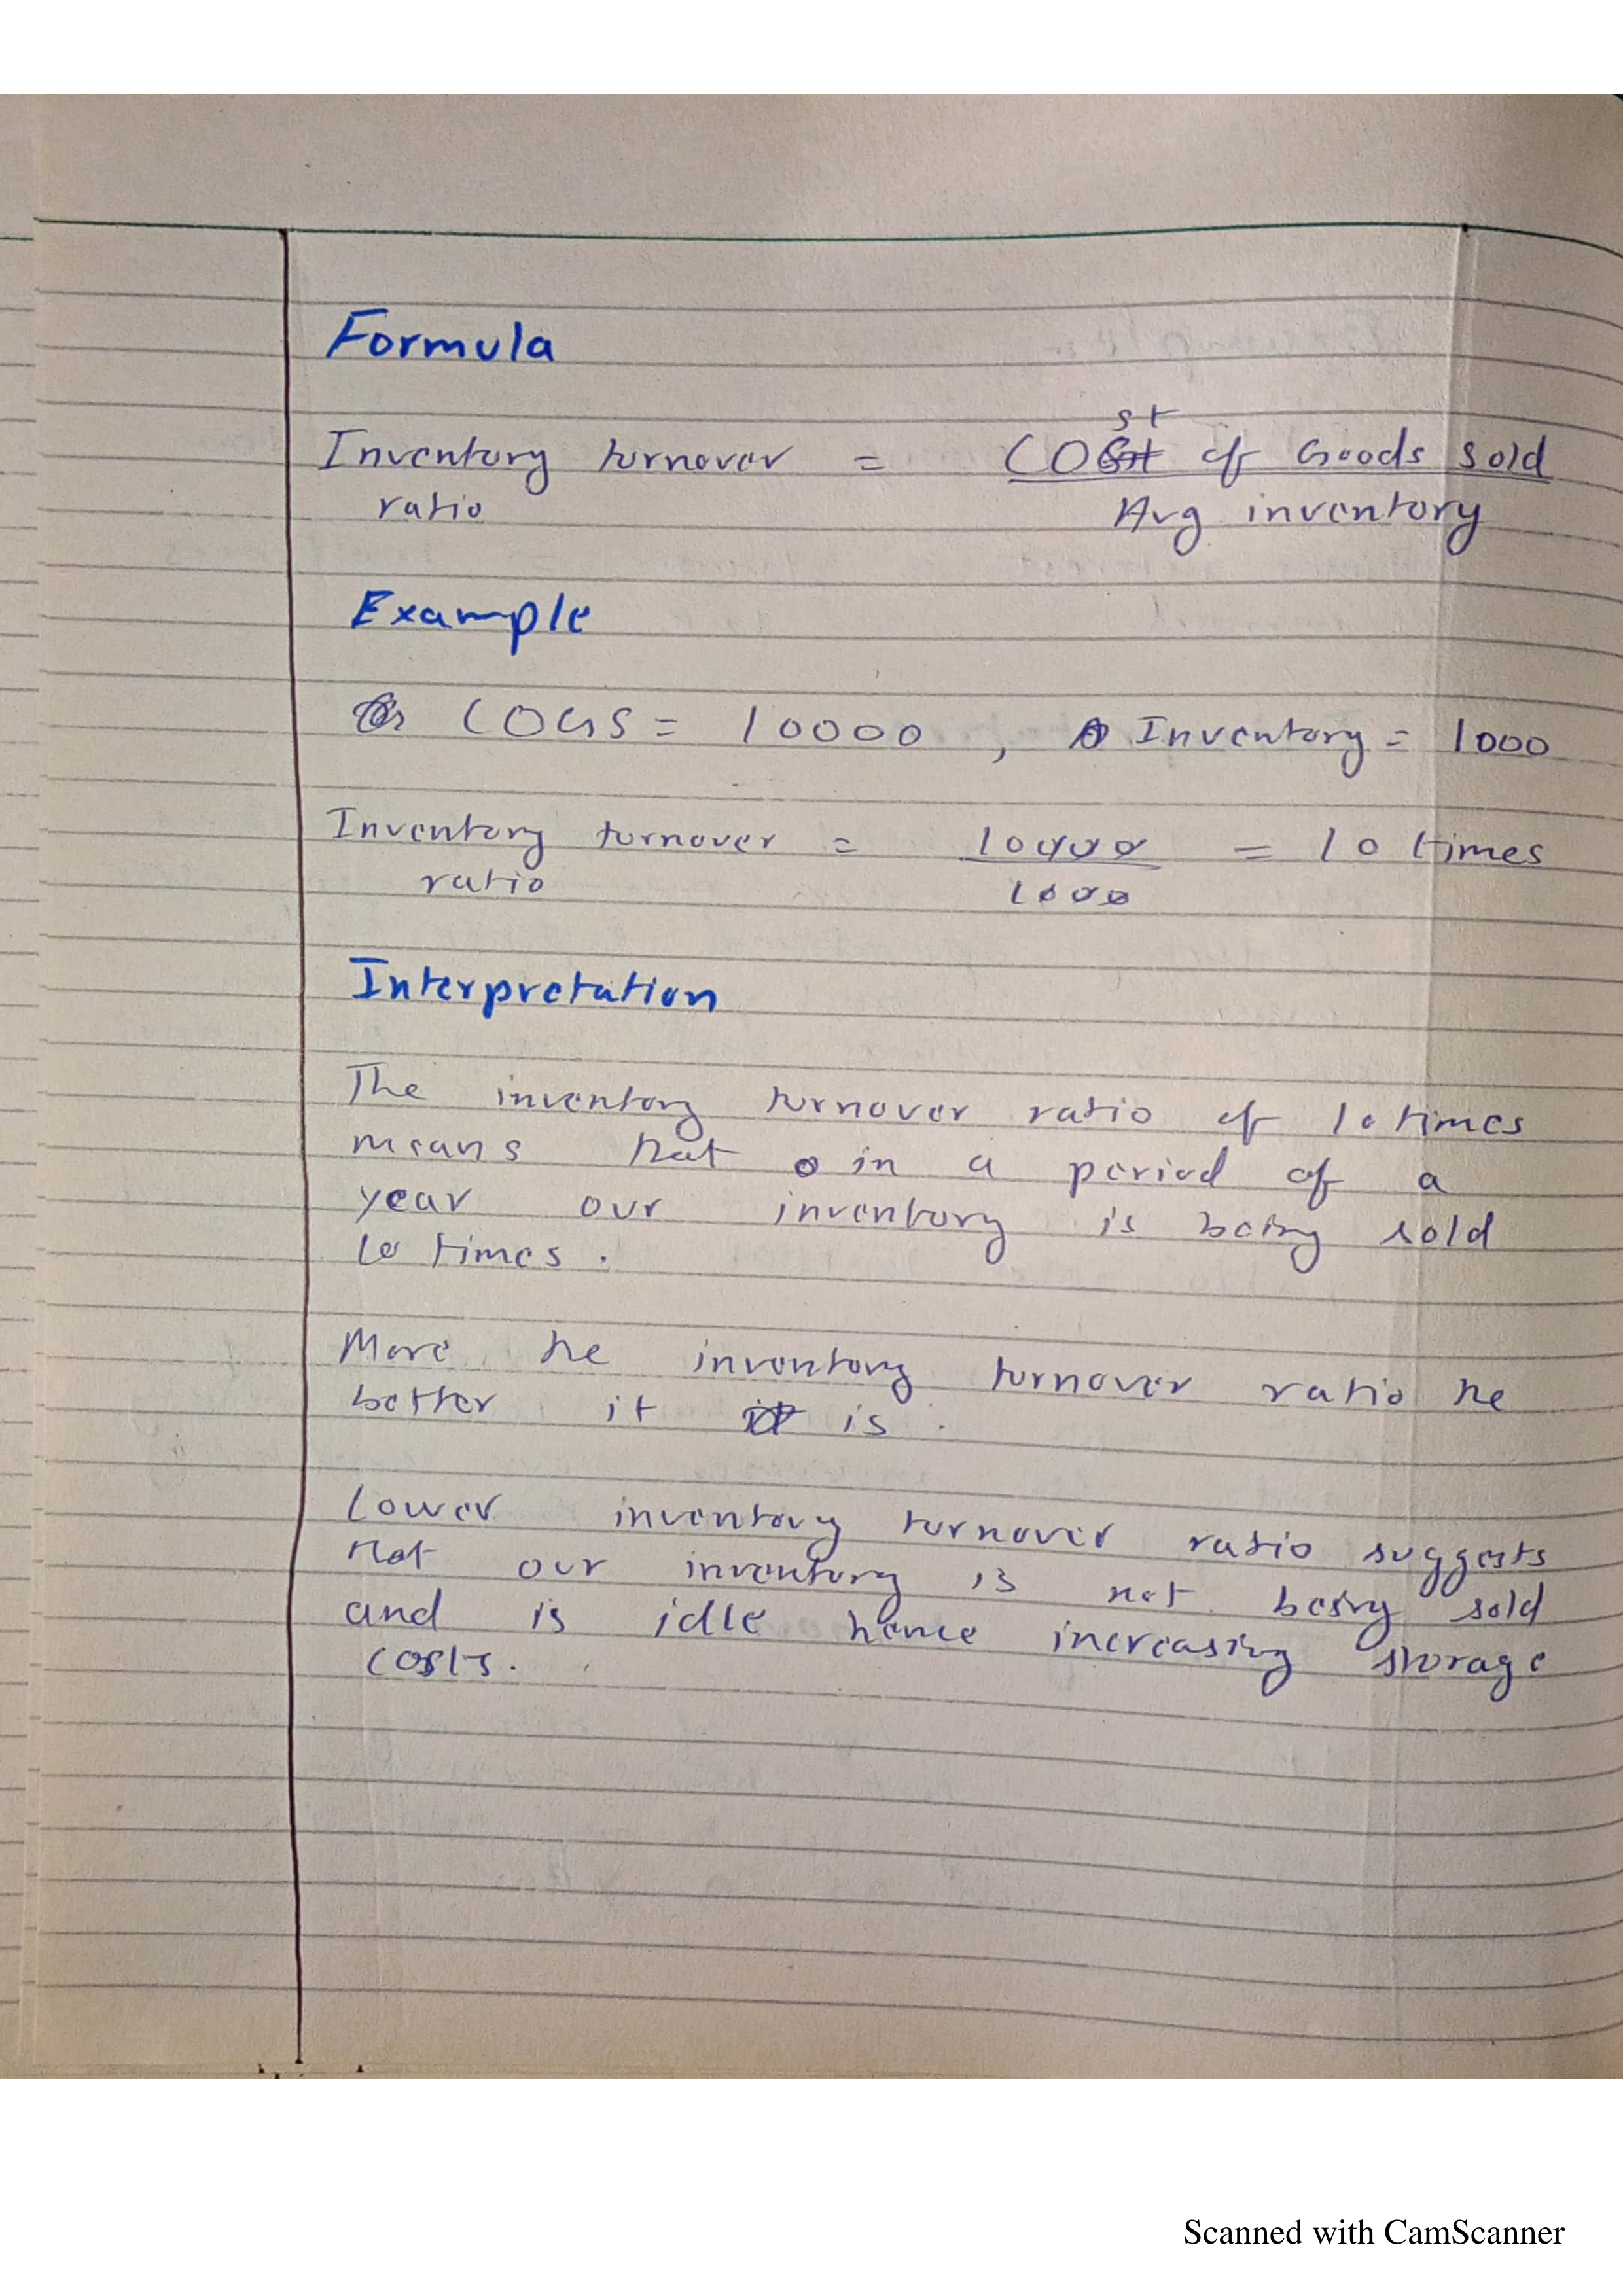 Formula
Inventory turnover = Cost of Goods sold
ratio Avg inventory
Example
COGS = 10000 , Inventory = 1000
Inventory turnover = 10000 = 10 times
ratio 1000
Interpretation
The inventory turnover ratio of 10 times
means that in a period of a
year our inventory is being sold
10 times .
More the inventory turnover ratio the
better it is .
Lower inventory turnover ratio suggests
that our inventory is not being sold
and is idle hence increasing storage
costs .
Scanned with CamScanner